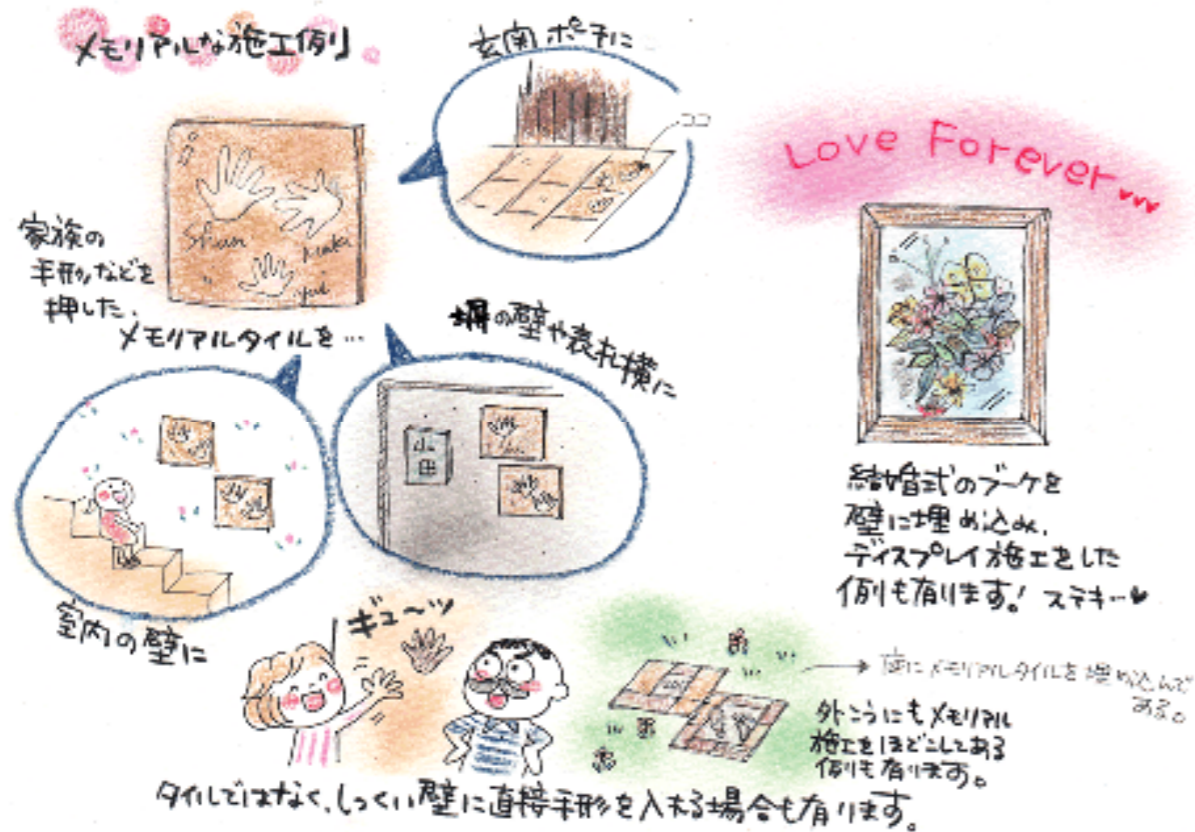 メモリアルな施工例
玄関ポーチに
ココ
Love Forever
家族の
手形などを
押した、
メモリアルタイルを…
Shun
yui
塀の壁や表札横に
山田
室内の壁に
結婚式のブーケを
壁に埋め込み、
ディスプレイ施工をした
例も有ります! ステキー♥
ギューッ
→ 庭にメモリアルタイルを埋め込んで
ある。
外こうにもメモリアル
施工をほどこしてある
例も有ります。
タイルではなく、しっくい壁に直接手形を入れる場合も有ります。